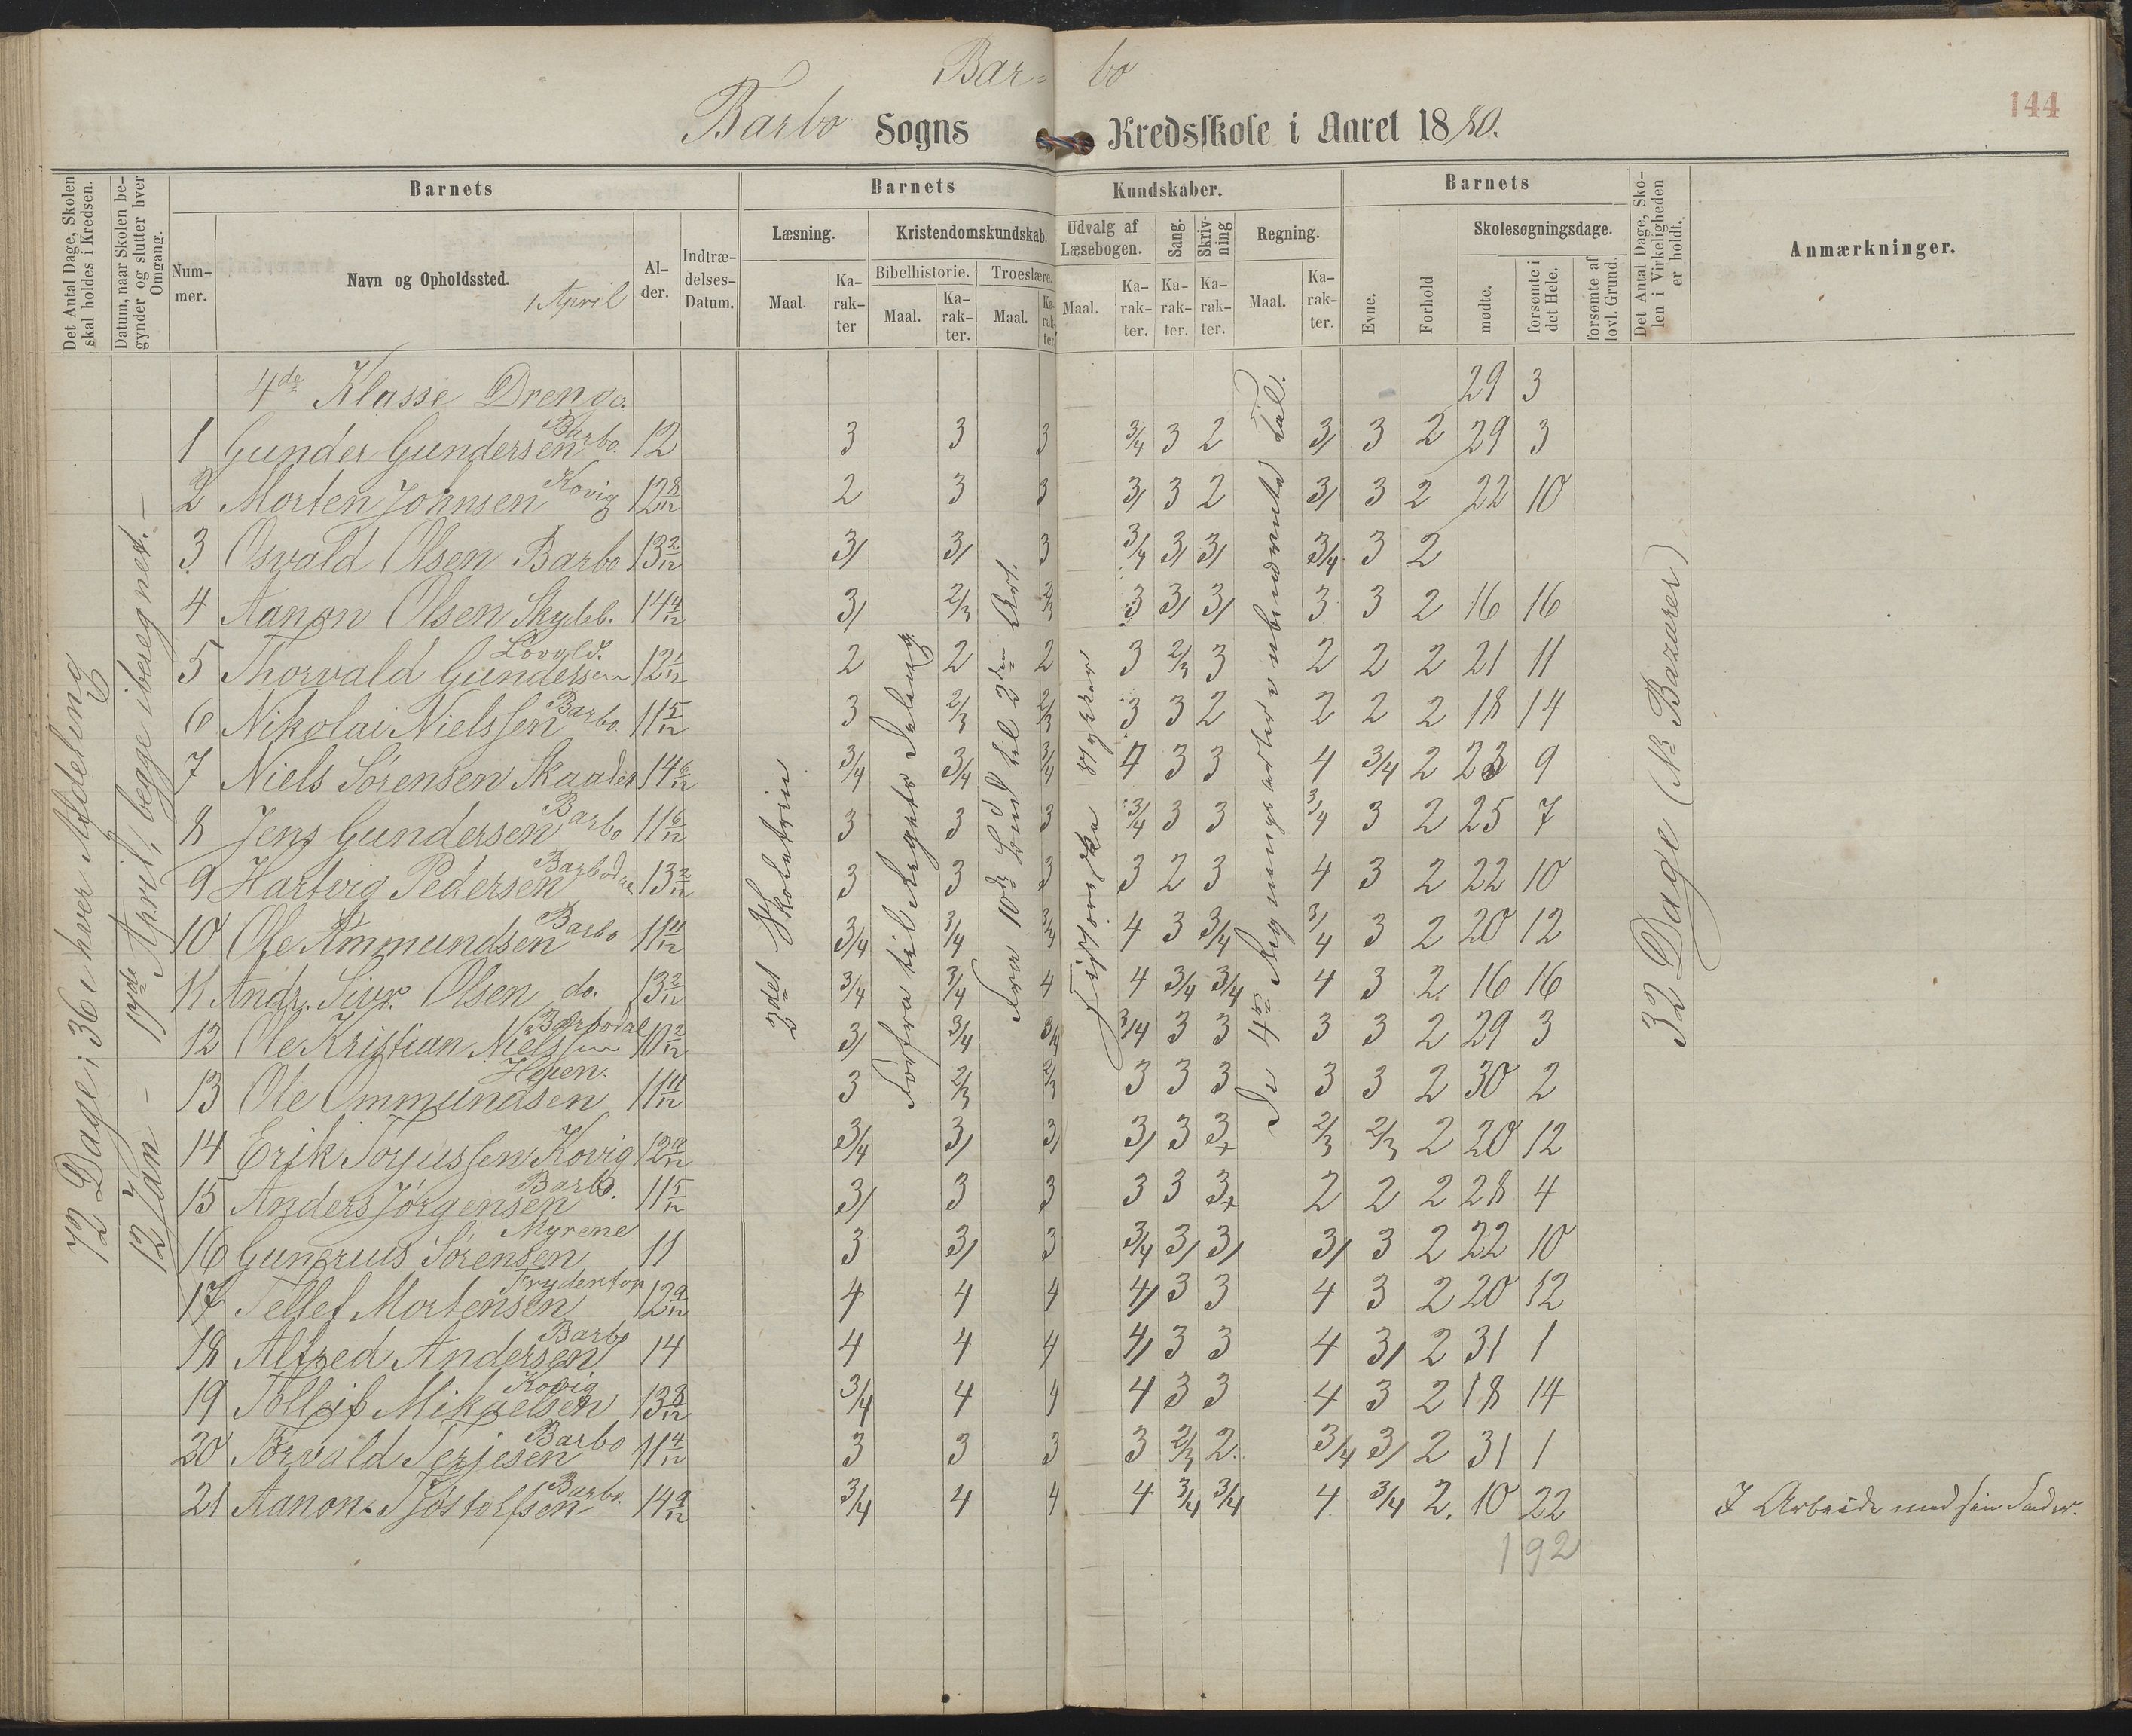 Bar- bo
144
Barbo Sogns Kredsskole i Aaret 1880.
Det Antal Dage, Skolen skal holdes i Kredsen.
Datum, naar Skolen begynder og slutter hver Omgang.
Barnets Barnets Kundskaber. Barnets
Det Antal Dage, Skolen i Virkeligheden er holdt.
Anmærkninger.
Nummer. Navn og Opholdssted. Alder. Indtrædelses-Datum.
1 April
Læsning. Kristendomskundskab. Udvalg af Læsebogen. Sang. Skrivning Regning. Evne. Forhold Skolesøgningsdage.
Bibelhistorie. Troeslære.
Maal. Karakter Maal. Karakter. Maal. Karakter Maal. Karakter. Karakter. Karakter. Maal. Karakter. mødte. forsømte i det Hele. forsømte af lovl. Grund.
72 Dage i 36 i hver Afdeling
12 Jan – 17de April, begge iberegnet. –
2det Skoletrin
Forfra til Rigets Deling
Fra 10de Bud til 3die Art.
Historiske Stykker
De 4 Regningsarter i ubenævnte Tal.
32 Dage (No Bazarer)
4de Klasse Drenge. 29 3
1 Gunder Gundersen Barbo. 12 3 3 3 3/4 3 2 3/ 3 2 29 3
2 Morten Johnsen Kovig 12 8/12 2 3 3 3/ 3 2 3/ 3 2 22 10
3 Osvald Olsen Barbo 13 2/12 3/ 3/ 3 3/4 3/ 3/ 3/4 3 2
4 Aanon Olsen Skybb. 14 4/12 3/ 2/3 2/3 3 3/ 3/ 3 3 2 16 16
5 Thorvald Gunderssen Lovold. 12 1/12 2 2 2 3 2/3 3 2 2 2 21 11
6 Nikolai Nielssen Barbo. 11 5/12 3 2/3 2/3 3 3 2 2 2 2 18 14
7 Niels Sörensen Skaaden 14 6/12 3/4 3/4 3/4 4 3 3 4 3/4 2 23 9
8 Jens Gundersen Barbo 11 6/12 3 3 3 3/4 3 3 3/4 3 2 25 7
9 Hartvig Pedersen Barbodal 13 2/12 3 3 3 3 2 3 4 3 2 22 10
10 Ole Ammundsen Barbo 11 11/12 3/4 3/4 3/4 4 3 3/4 3/4 3 2 20 12
11 Andr. Sivr. Olsen do. 13 2/12 3/4 3/4 4 4 3/4 3/4 4 3 2 16 16
12 Ole Kristian Nielssen Barbodal 10 2/12 3/ 3/4 3/4 3/4 3 3 3 3 2 29 3
13 Ole Ommundsen Heien. 11 11/12 3 2/3 2/3 3 3 3 3 3 2 30 2
14 Erik Torjussen Kovig 12 2/12 3/4 3/ 3/ 3/ 3 3+ 2/3 2/3 2 20 12
15 Anders Jörgensen Barbo. 11 5/12 3/ 3 3 3 3 3+ 2 2 2 28 4
16 Gunerius Sörensen Myrene 11 3 3/ 3 3/4 3/ 3/ 3/ 3 2 22 10
17 Tellef Mortensen 12 9/12 4 4 4 4/ 3 3 4 3 2 20 12
18 Alfred Andersen Barbo 14 4 4 4 4/ 3 3 4 3/ 2 31 1
19 Tolleif Mikaelsen Kovig 13 8/12 3/4 4 4 4 3 3 4 3 2 18 14
20 Torvald Terjesen Barbo 11 4/12 3 3 3 3 2/3 2. 3/4 3/ 2 31 1
21 Aanon. Tjöstolfsen Barbo. 14 9/12 3/4 4 4 4 3/4 3/4 4. 3/4 2. 10 22 I Arbeide med sin Fader.
192